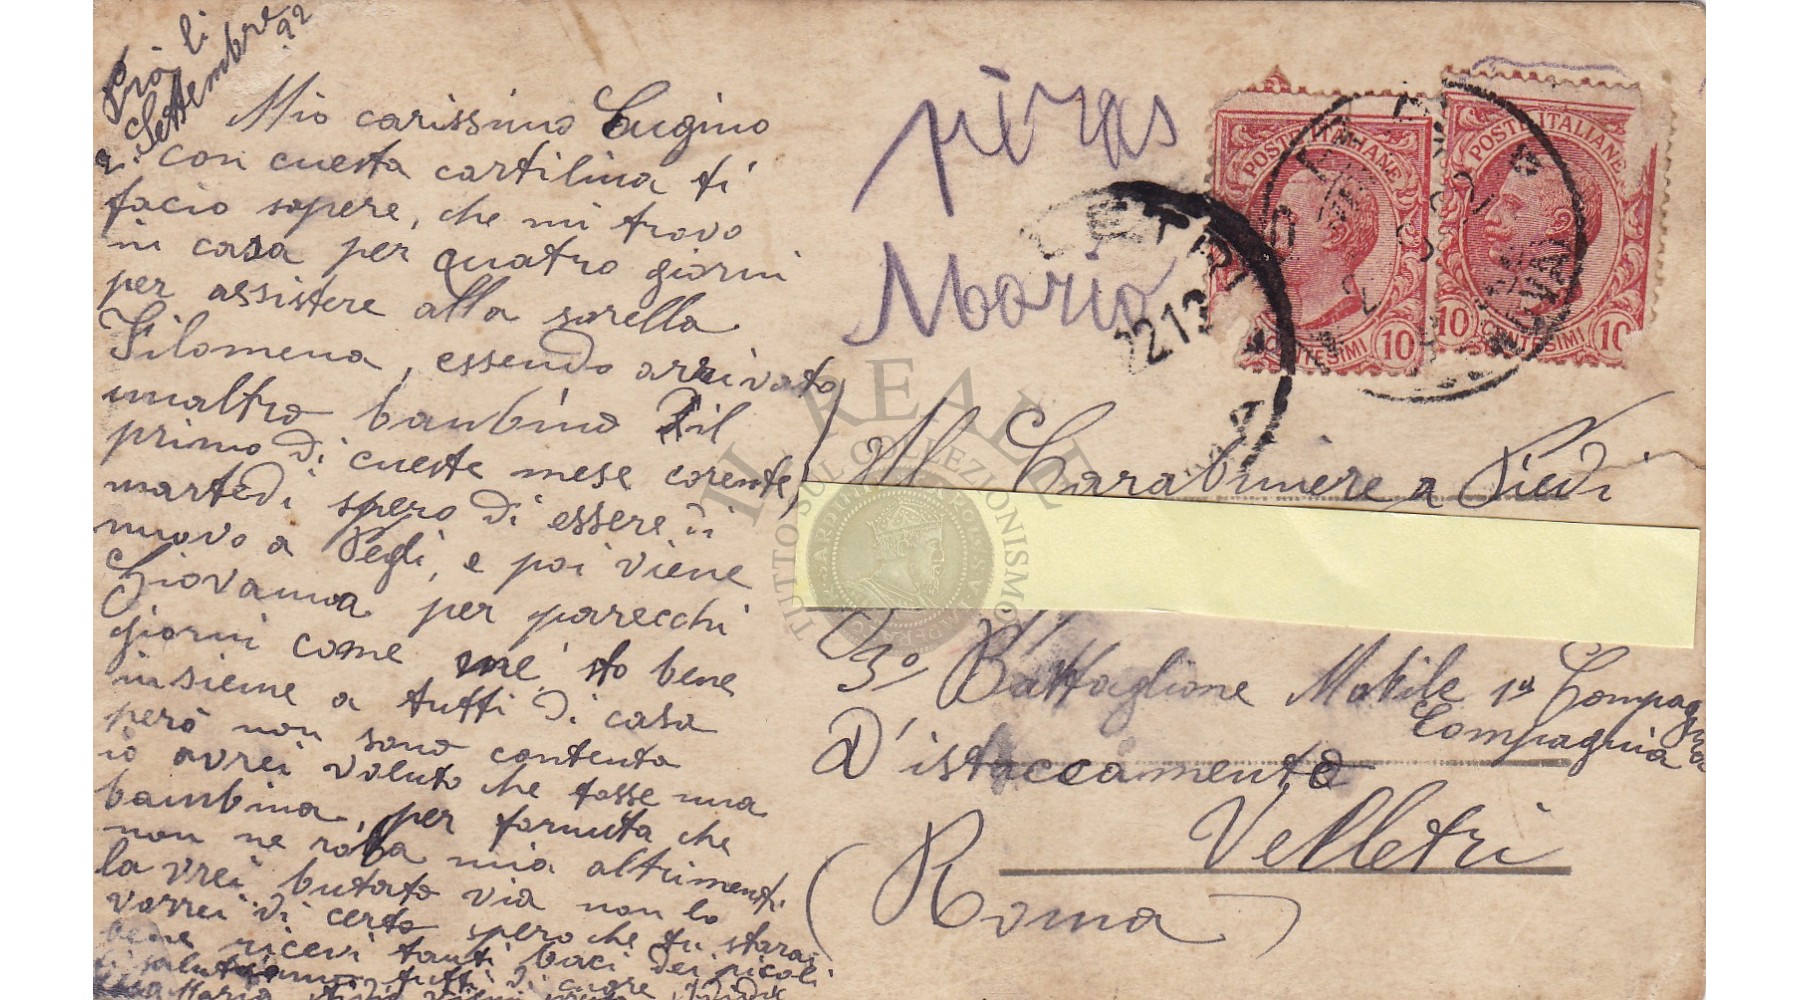 Prà li
2. Settembre 22
Mio carissimo Gugino
con cuesta cartilina ti
facio sapere, che mi trovo
in casa per quatro giorni
per assistere alla sorella
Filomena, essendo arrivato
unaltro bambino il
primo di cueste mese corente,
martedi spero di essere di
nuovo a Pegli, e poi viene
Giovanna per parecchi
giorni come me sto bene
insieme a tutti di casa
però non sono contenta
io avrei voluto che fosse una
bambina, per fornuta che
non ne roba mia altrimenti
la vrei butato via non lo
vorrei di certo spero che tu starai
bene ricevi tanti baci dei picoli
ti salutiamo tutti di cuore
Maria
pieras
Mario
POSTE ITALIANE
CENTESIMI 10
POSTE ITALIANE
10 CENTESIMI 10
LETRI
22.12
Al Carabiniere a Piedi
3º Battaglione Mobile 1ª Compagnia
Compagnia
D'istaccamento
Velletri
(Roma)
IL REALE
TUTTO SUL COLLEZIONISMO